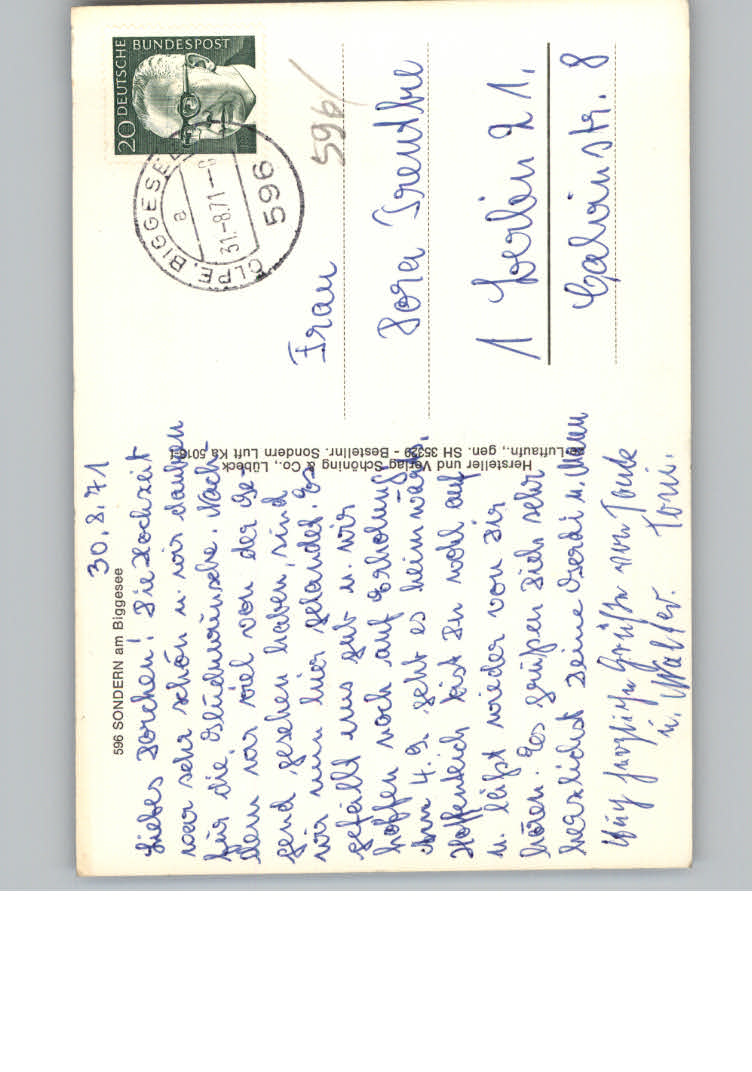 596 SONDERN am Biggesee
30.8.71
Liebes Dorchen! Die Hochzeit
war sehr schön u. wir danken
für die Glückwünsche. Nach-
dem wir viel von der Ge-
gend gesehen haben, sind
wir nun hier gelandet. Es
gefällt uns gut u. wir
hoffen noch auf Erholung.
Am 4.9. geht es heimwärts.
Hoffentlich bist Du wohl auf
u. läßt wieder von Dir
hören. Es grüßen Dich sehr
herzlichst Deine Gerdi u. Mann
Auch herzliche Grüße von Tante
u. Walter. Toni.
Hersteller und Verlag Schöning & Co., Lübeck
-Luftaufn., gen. SH 35329 - Bestellnr. Sondern Luft Ka 5016
DEUTSCHE BUNDESPOST
20
OLPE, BIGGESEE
a
31.-8.71
596
596/
Frau
Dora
1 Berlin 21,
Calvinstr. 8